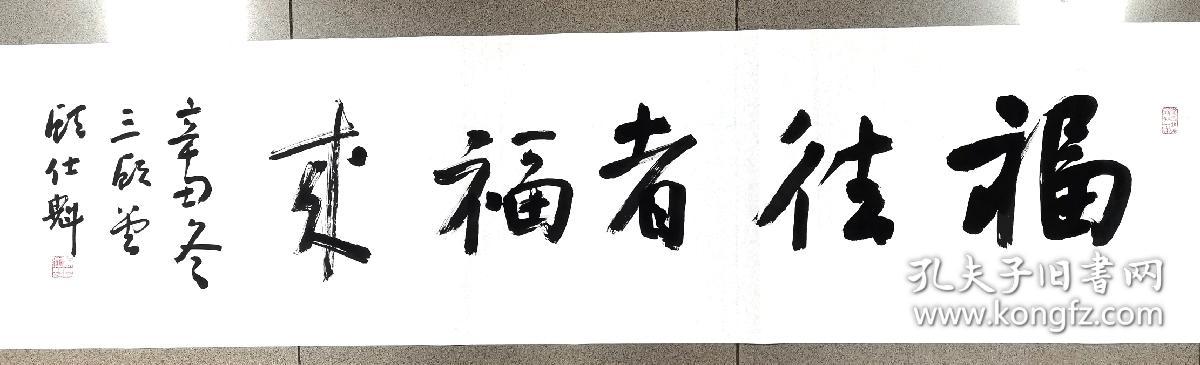 福往者福来
冬
三顾
顾仕魁
孔夫子旧书网
www.kongfz.com